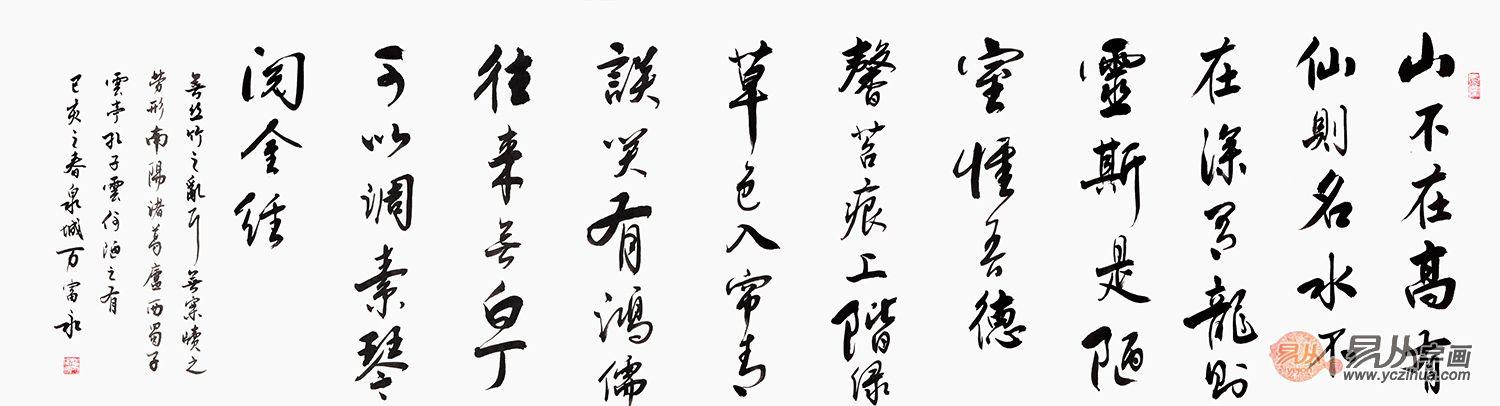 山不在高有
仙則名水不
在深有龍則
靈斯是陋
室惟吾德
馨苔痕上階绿
草色入帘青
談笑有鴻儒
往来無白丁
可以调素琴
阅金经
無丝竹之亂耳無案牘之
劳形南陽诸葛廬西蜀子
雲亭孔子雲何陋之有
己亥之春泉城万富永
易从
易从字画
www.yczihua.com